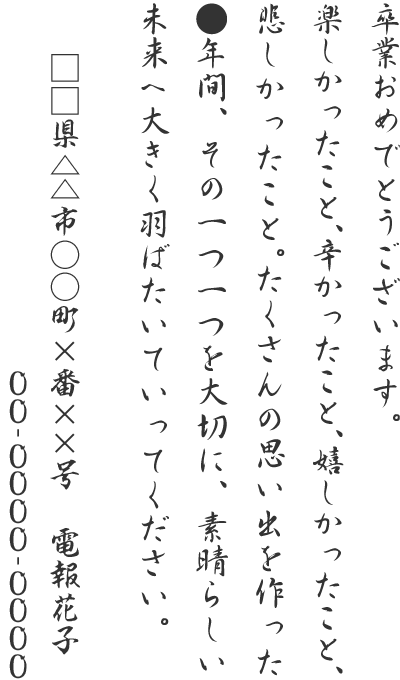 卒業おめでとうございます。
楽しかったこと、辛かったこと、嬉しかったこと、
悲しかったこと。たくさんの思い出を作った
●年間、その一つ一つを大切に、素晴らしい
未来へ大きく羽ばたいていってください。
□□県△△市○○町××番××号　電報花子
00-0000-0000